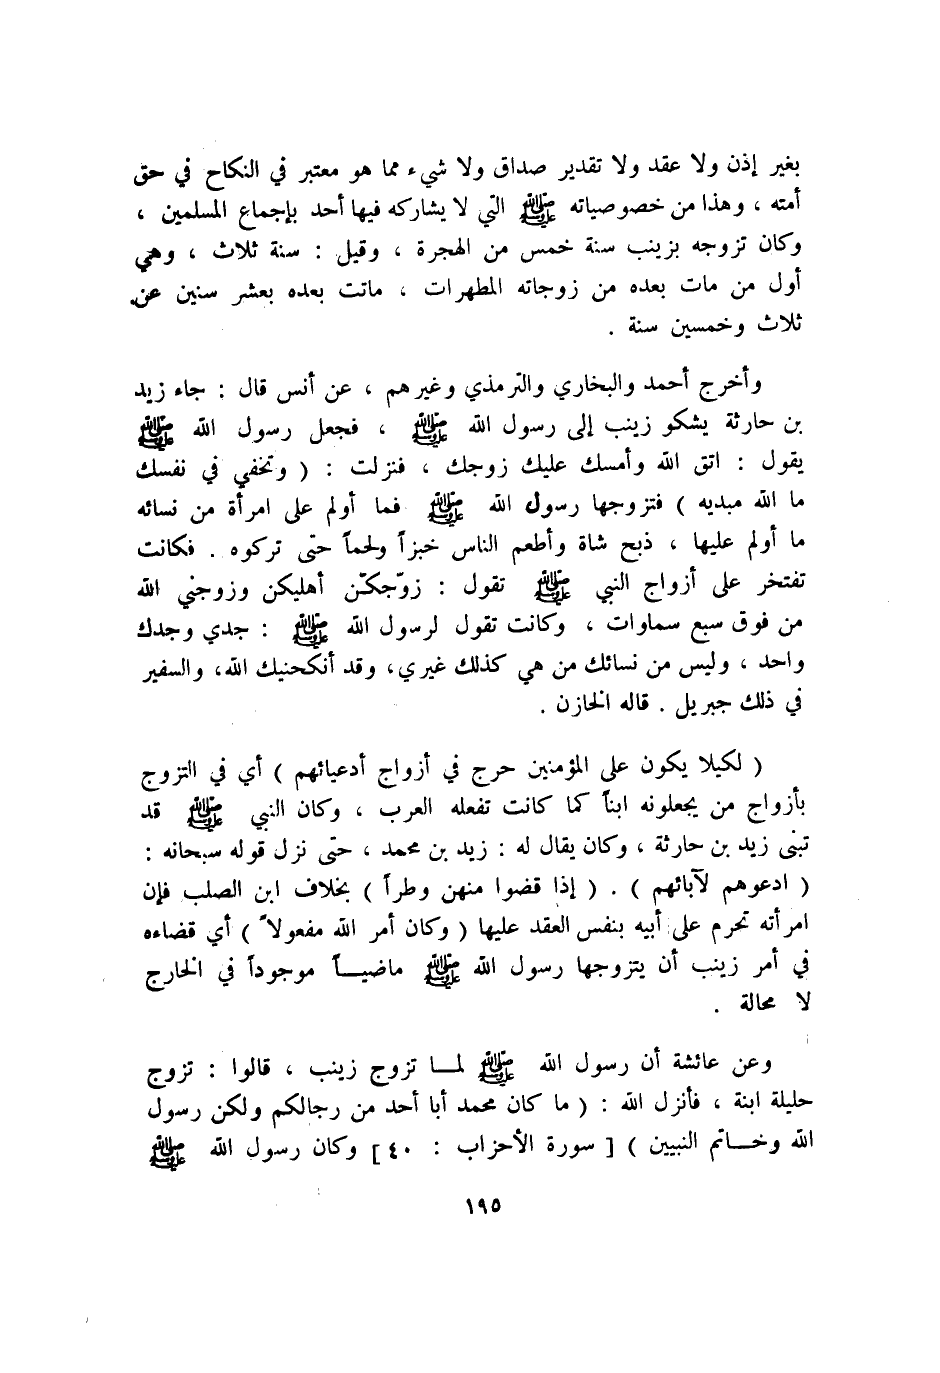 بغير إذن ولا عقد ولا تقدير صداق ولا شيء مما هو معتبر في النكاح في حق
أمته ، وهذا من خصوصياته ﷺ التي لا يشاركه فيها أحد بإجماع المسلمين ،
وكان تزوجه بزينب سنة خمس من الهجرة ، وقيل : سنة ثلاث ، وهي
أول من مات بعده من زوجاته المطهرات ، ماتت بعده بعشر سنين عن
ثلاث وخمسين سنة .
وأخرج أحمد والبخاري والترمذي وغيرهم ، عن أنس قال : جاء زيد
بن حارثة يشكو زينب إلى رسول الله ﷺ ، فجعل رسول الله ﷺ
يقول : اتق الله وأمسك عليك زوجك ، فنزلت : ( وتخفي في نفسك
ما الله مبديه ) فتزوجها رسول الله ﷺ فما أولم على امرأة من نسائه
ما أولم عليها ، ذبح شاة وأطعم الناس خبزاً ولحماً حتى تركوه . فكانت
تفتخر على أزواج النبي ﷺ تقول : زوّجكنّ أهليكن وزوجني الله
من فوق سبع سماوات ، وكانت تقول لرسول الله ﷺ : جدي وجدك
واحد ، وليس من نسائك من هي كذلك غيري ، وقد أنكحنيك الله ، والسفير
في ذلك جبريل . قاله الخازن .
( لكيلا يكون على المؤمنين حرج في أزواج أدعيائهم ) أي في التزوج
بأزواج من يجعلونه ابناً كما كانت تفعله العرب ، وكان النبي ﷺ قد
تبنى زيد بن حارثة ، وكان يقال له : زيد بن محمد ، حتى نزل قوله سبحانه :
( ادعوهم لآبائهم ) . ( إذا قضوا منهن وطراً ) بخلاف ابن الصلب فإن
امرأته تحرم على أبيه بنفس العقد عليها ( وكان أمر الله مفعولاً ) أي قضاءه
في أمر زينب أن يتزوجها رسول الله ﷺ ماضيــاً موجوداً في الخارج
لا محالة .
وعن عائشة أن رسول الله ﷺ لمــا تزوج زينب ، قالوا : تزوج
حليلة ابنة ، فأنزل الله : ( ما كان محمد أبا أحد من رجالكم ولكن رسول
الله وخــاتم النبيين ) [ سورة الأحزاب : ٤٠ ] وكان رسول الله ﷺ
١٩٥